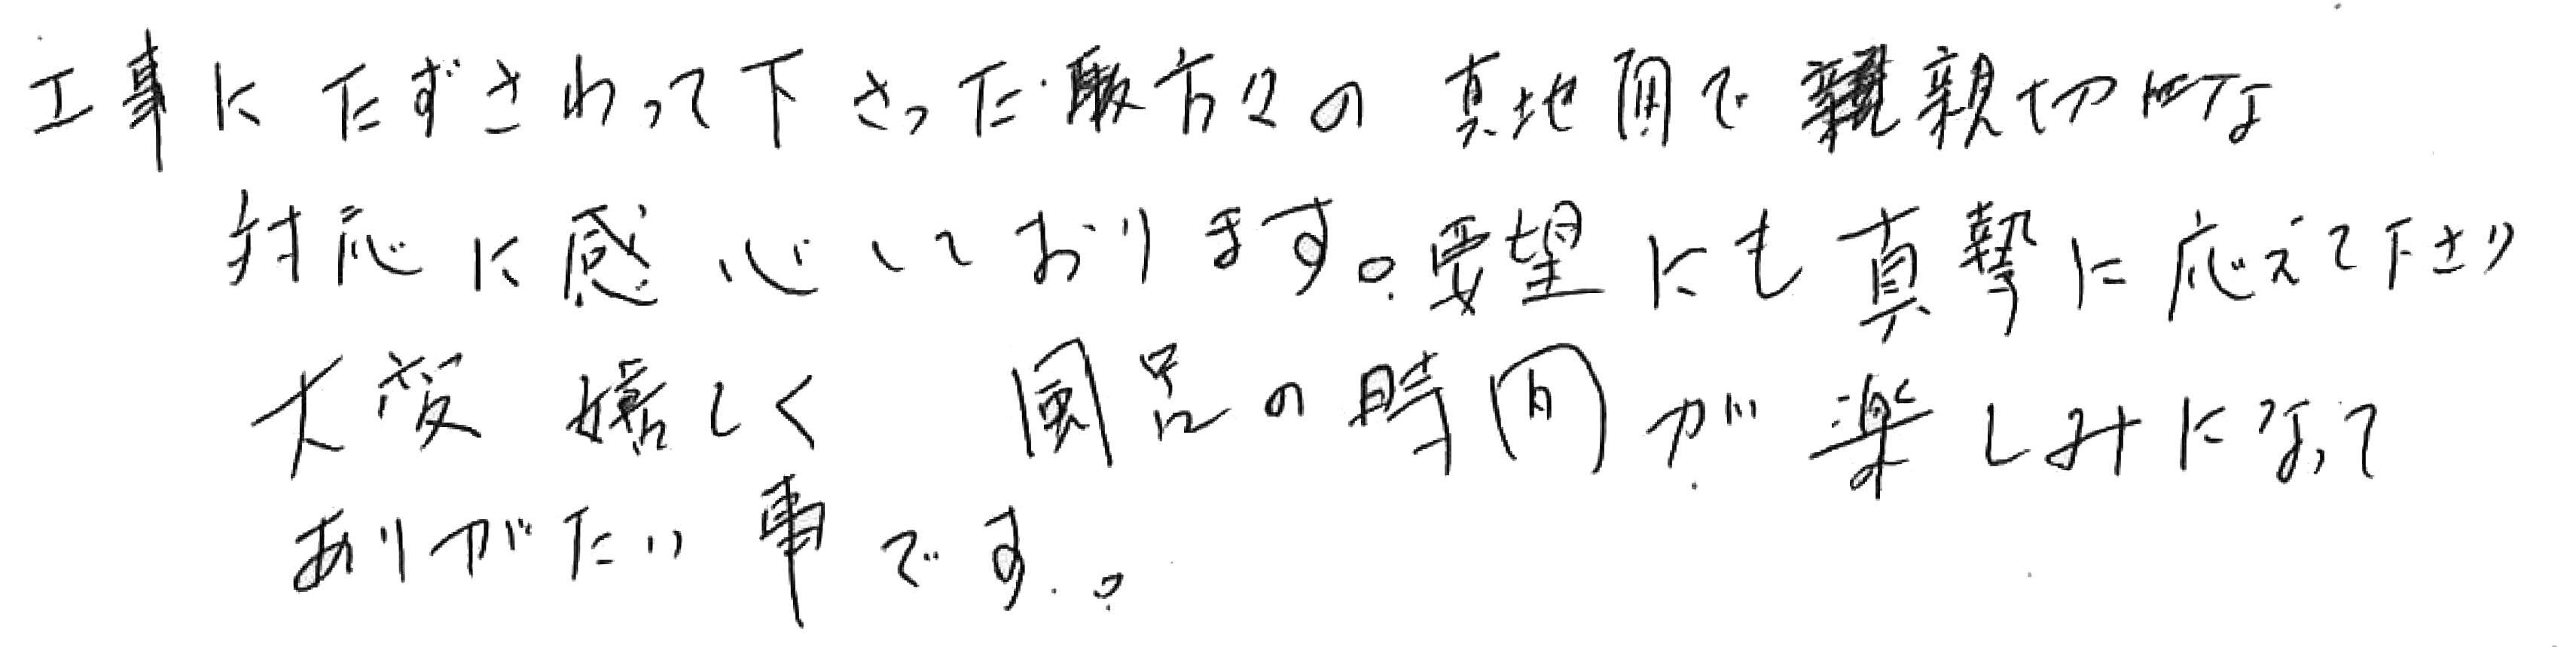 工事にたずさわって下さった方々の 真地面で親切な
対応に感心しております。要望にも真摯に応えて下さり
大変嬉しく 風呂の時間が楽しみになって
ありがたい事です。